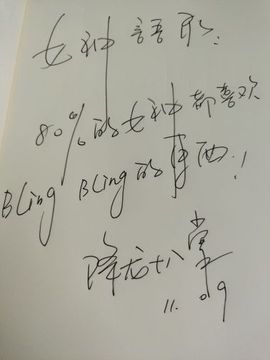 女神語录：
80%的女神都喜欢
Bling Bling的東西！
降龙十八掌
11.09